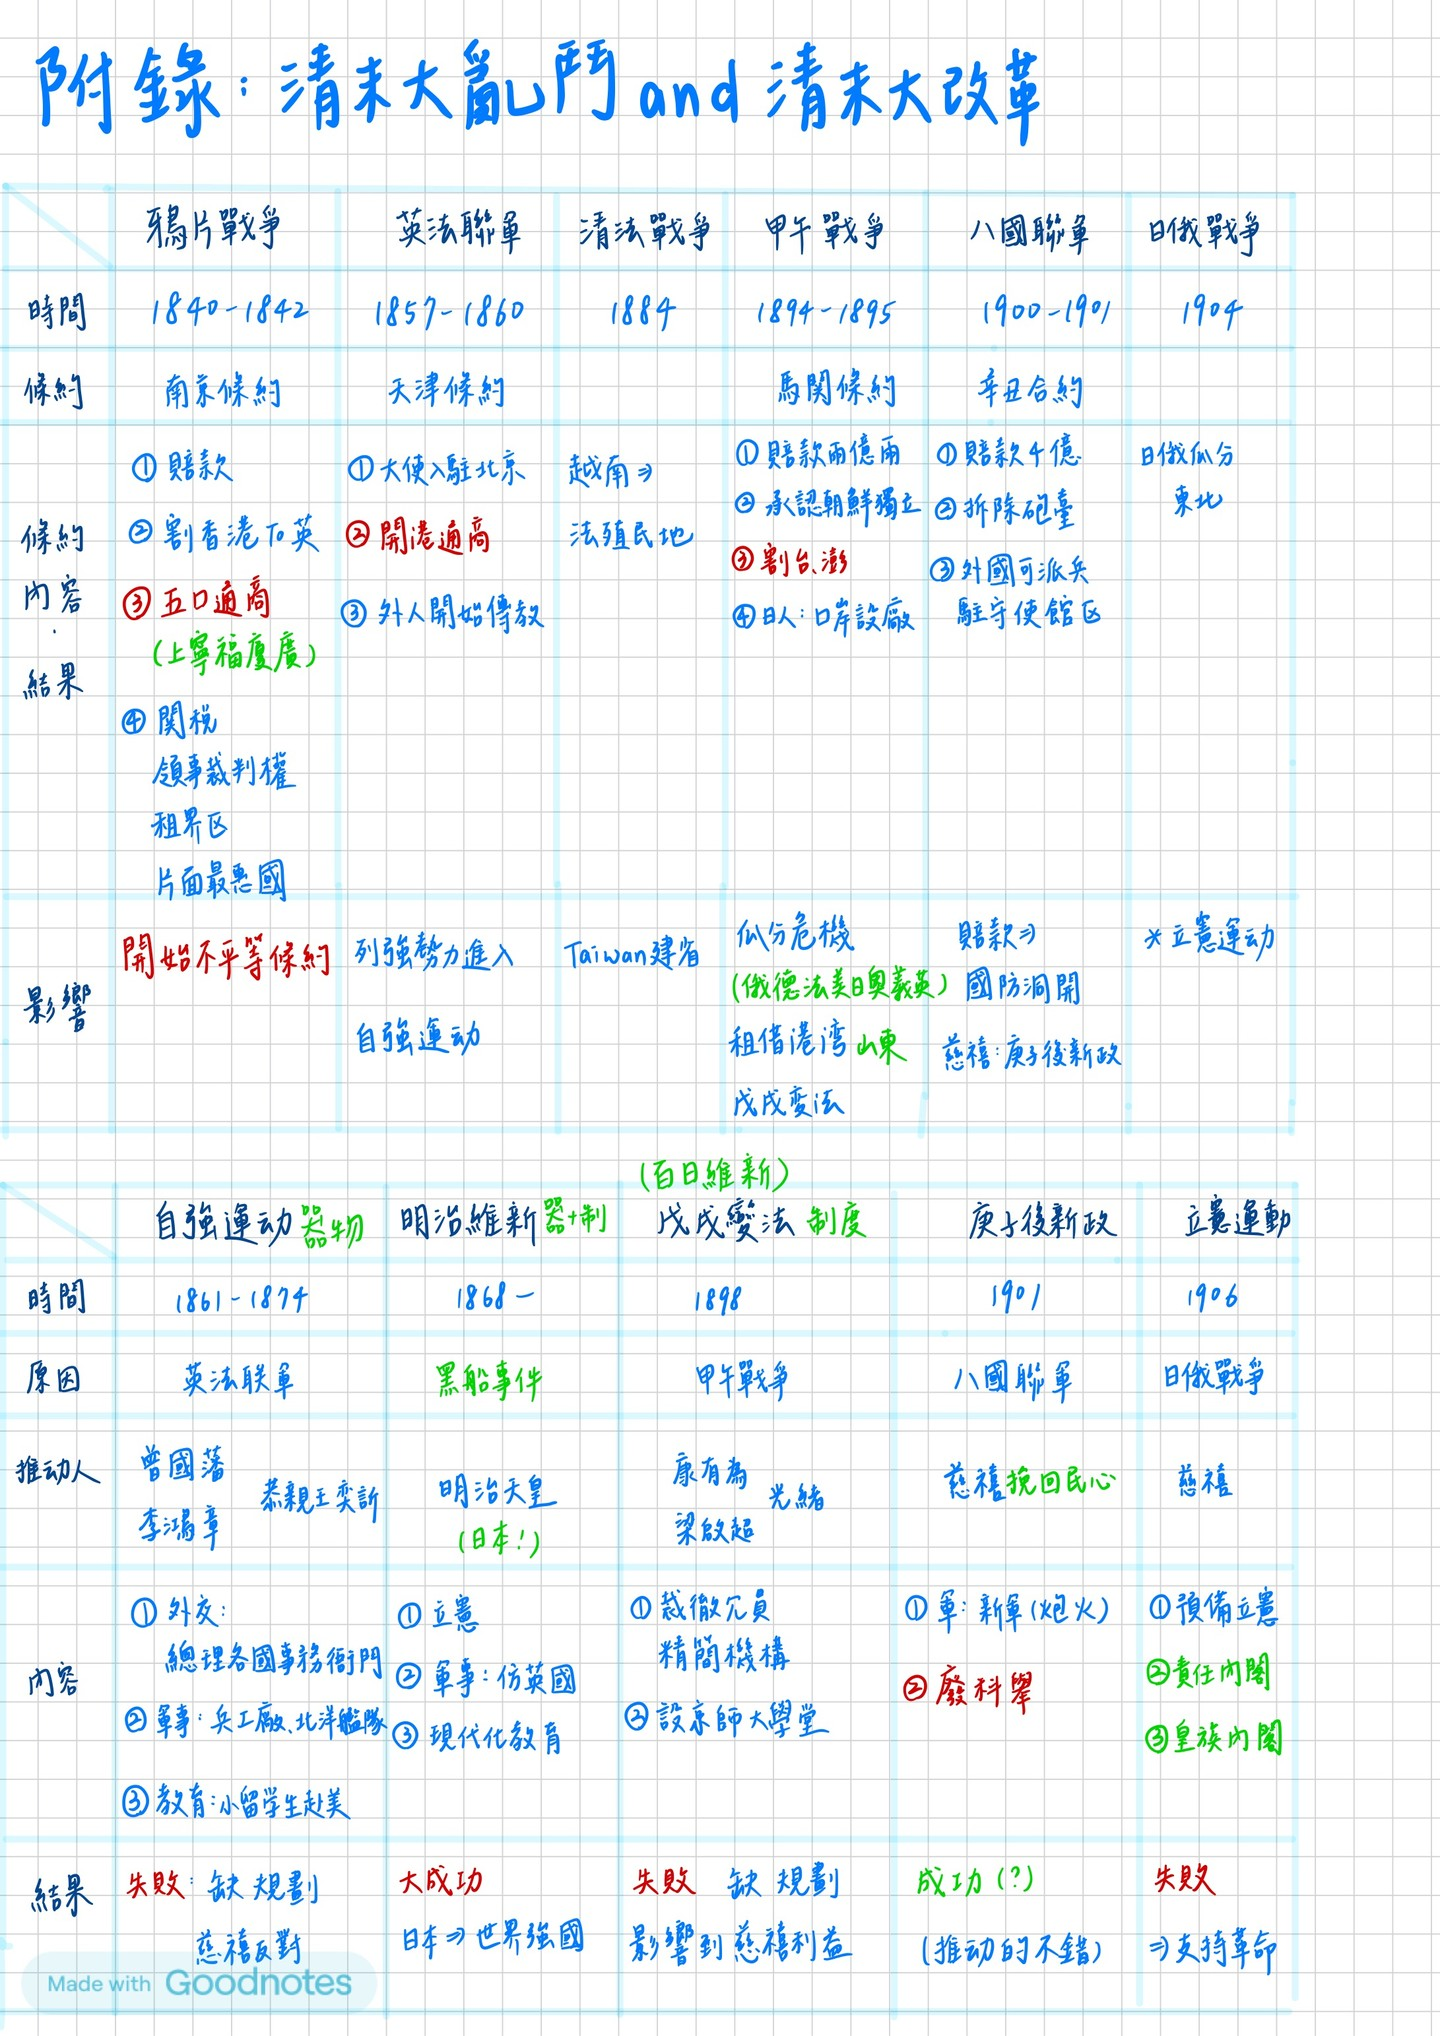 附錄：清末大亂鬥 and 清末大改革
鴉片戰爭 英法聯軍 清法戰爭 甲午戰爭 八國聯軍 日俄戰爭
時間 1840-1842 1857-1860 1884 1894-1895 1900-1901 1904
條約 南京條約 天津條約 馬関條約 辛丑合約
條約內容・結果
① 賠款
② 割香港 To 英
③ 五口通商
(上寧福廈廣)
④ 関稅
領事裁判權
租界区
片面最惠國
① 大使入駐北京
② 開港通商
③ 外人開始傳教
越南⇒
法殖民地
① 賠款兩億兩
② 承認朝鮮獨立
③ 割台、澎
④ 日人：口岸設廠
① 賠款4億
② 拆除砲臺
③ 外國可派兵
駐守使館区
日俄瓜分
東北
影響
開始不平等條約
列強勢力進入
自強運动
Taiwan建省
瓜分危機
(俄德法美日奧義英)
租借港湾 山東
戊戌变法
賠款⇒
國防洞開
慈禧：庚子後新政
*立憲運动
(百日維新)
自強運动 器物 明治維新 器+制 戊戌變法 制度 庚子後新政 立憲運動
時間 1861-1874 1868- 1898 1901 1906
原因 英法联軍 黑船事件 甲午戰爭 八國聯軍 日俄戰爭
推动人
曾國藩
李鴻章
恭親王奕訢
明治天皇
(日本！)
康有為
梁啟超
光緒
慈禧 挽回民心
慈禧
內容
① 外交：
總理各國事務衙門
② 軍事：兵工廠、北洋艦隊
③ 教育：小留学生赴美
① 立憲
② 軍事：仿英國
③ 現代化教育
① 裁徹冗員
精簡機構
② 設京師大學堂
① 軍：新軍(炮火)
② 廢科舉
① 預備立憲
② 責任內閣
③ 皇族內閣
結果
失敗：缺規劃
慈禧反對
大成功
日本⇒世界強國
失敗 缺規劃
影響到慈禧利益
成功(?)
(推动的不錯)
失敗
⇒支持革命
Made with Goodnotes